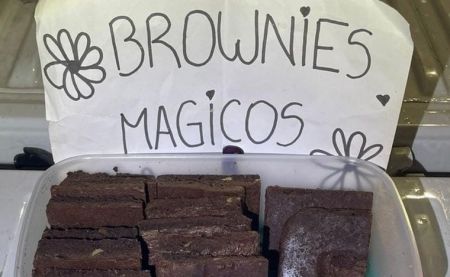 BROWNIES
MAGICOS